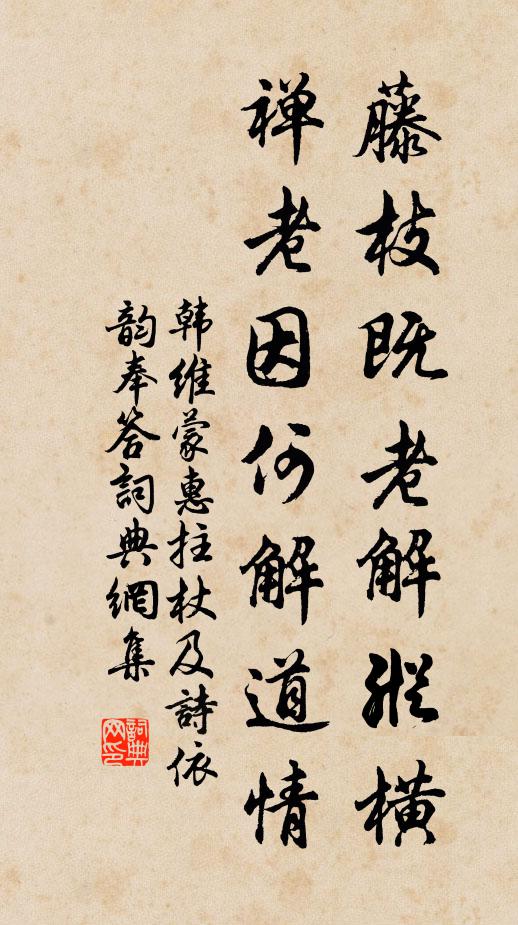 藤枝既老解縱横
禅老因何解道情
韩維蒙惠拄杖及詩依
韵奉答詞典網集
詞典网印